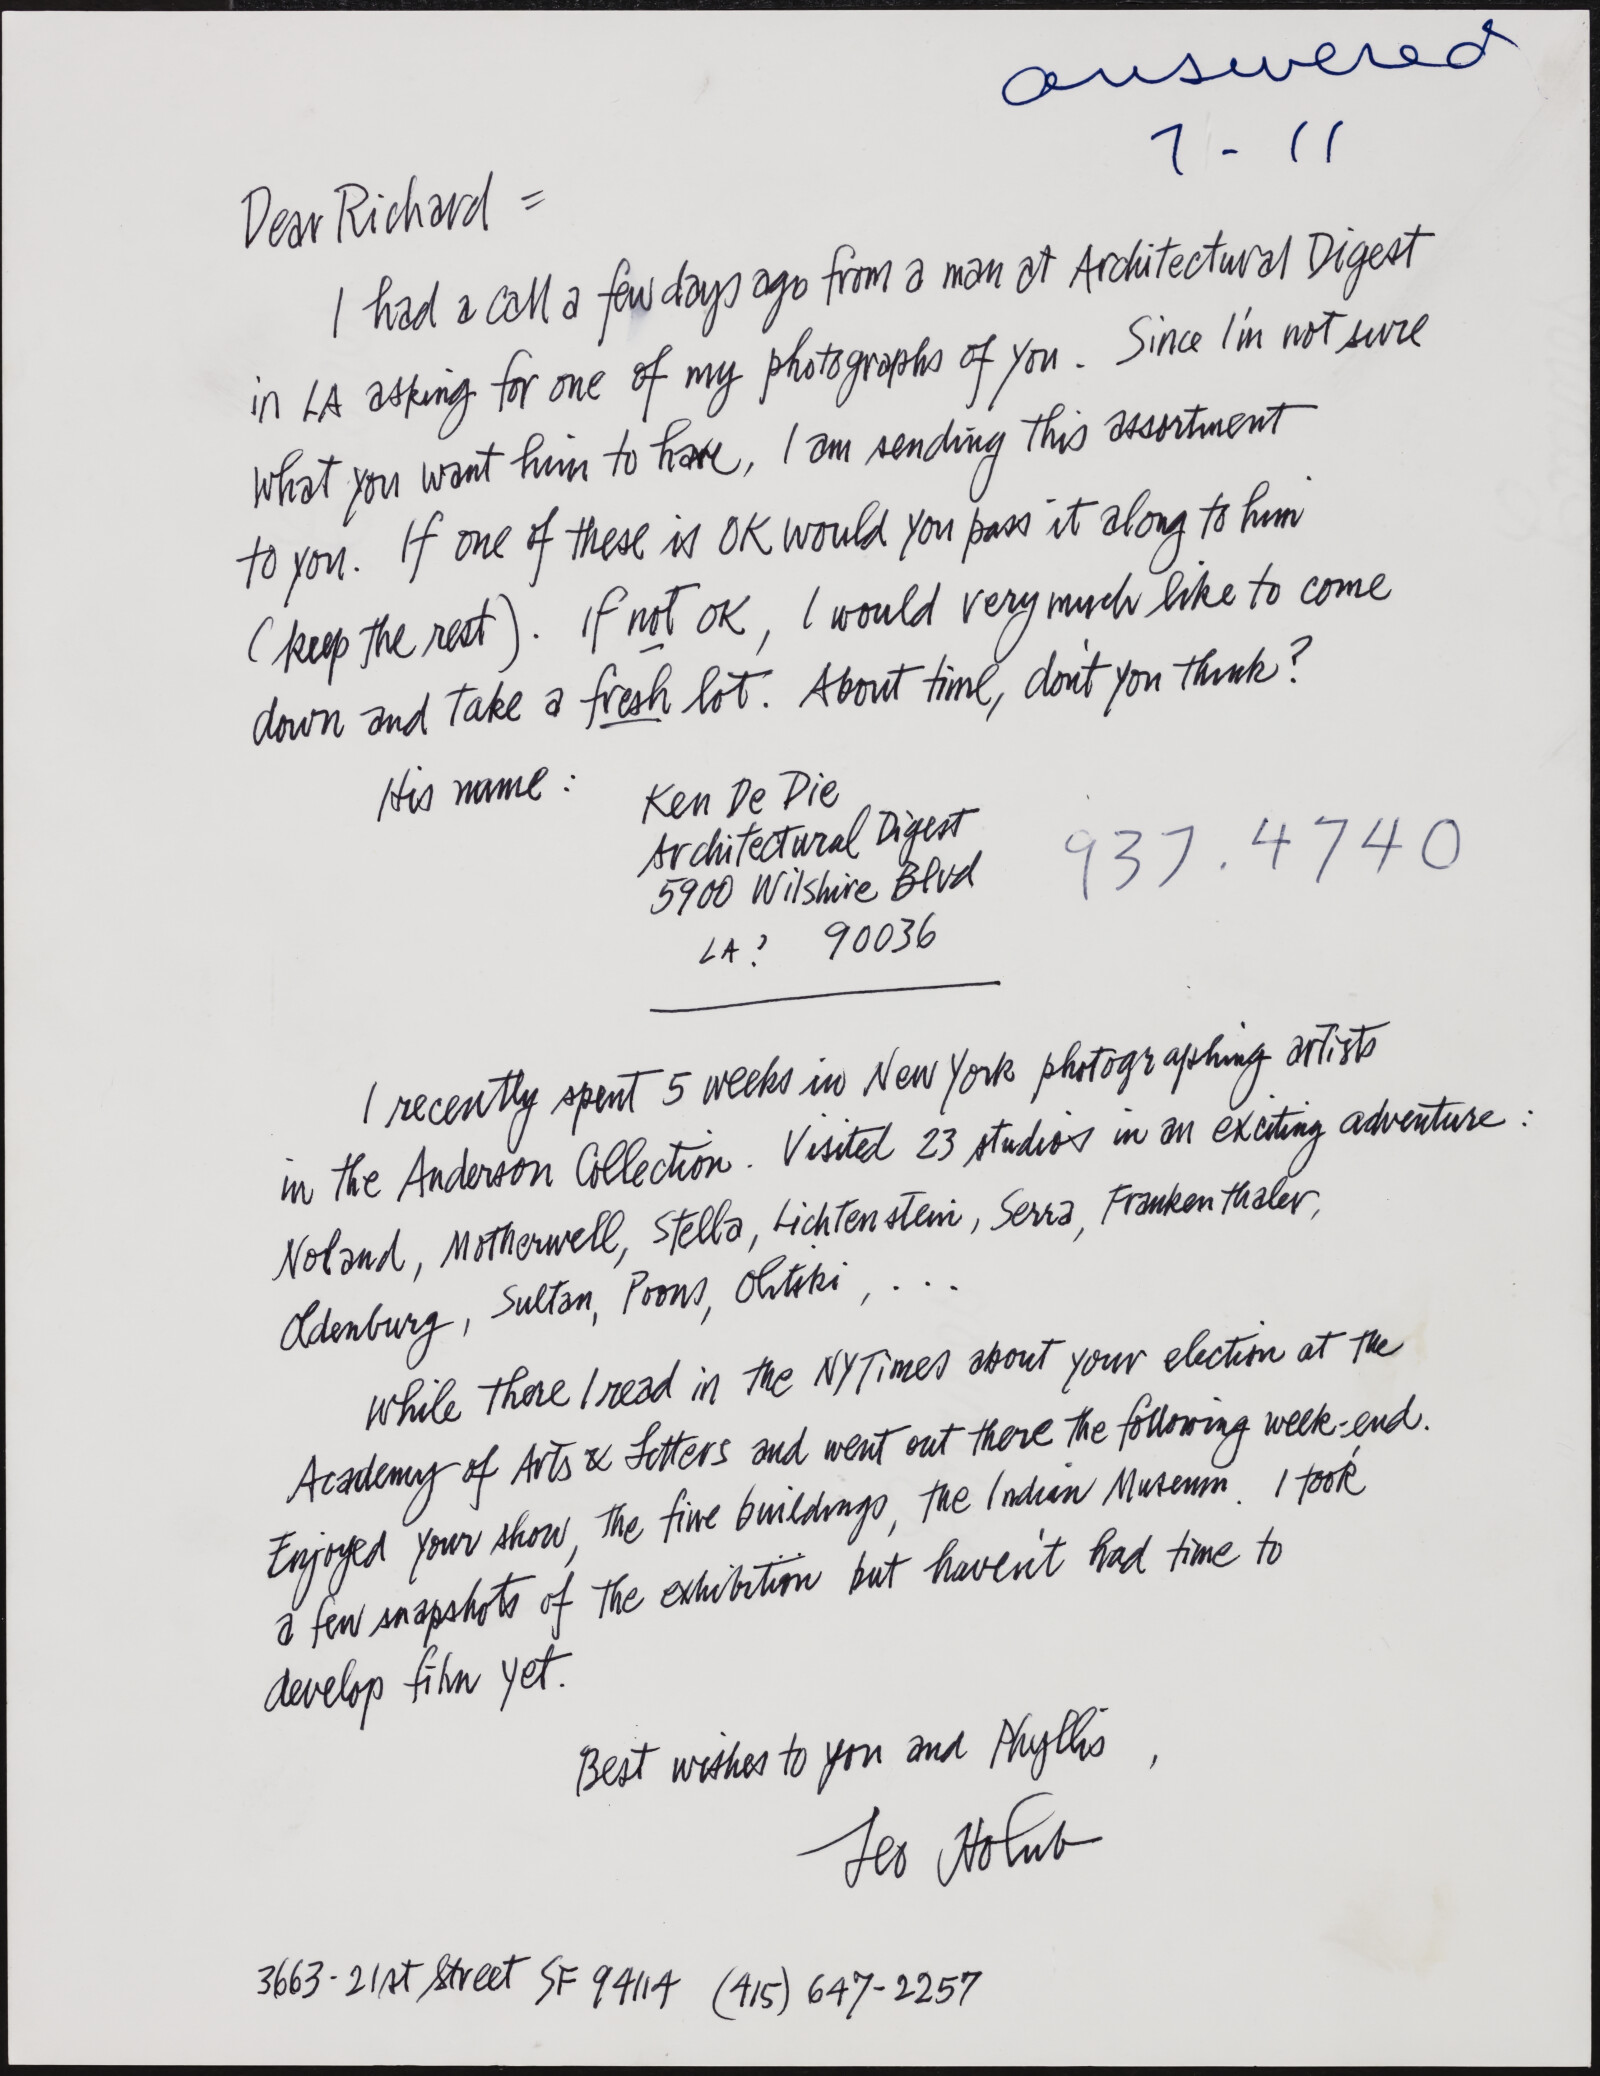 answered
7-11
Dear Richard =
I had a call a few days ago from a man at Architectural Digest
in LA asking for one of my photographs of you. Since I'm not sure
what you want him to have, I am sending this assortment
to you. If one of these is OK would you pass it along to him
(keep the rest). If not OK, I would very much like to come
down and take a fresh lot. About time, don't you think?
His name: Ken De Die
Architectural Digest
5900 Wilshire Blvd 937.4740
LA? 90036
I recently spent 5 weeks in New York photographing artists
in the Anderson Collection. Visited 23 studios in an exciting adventure:
Noland, Motherwell, Stella, Lichtenstein, Serra, Frankenthaler,
Oldenburg, Sultan, Poons, Olitski, ...
While there I read in the NY Times about your election at the
Academy of Arts & Letters and went out there the following week-end.
Enjoyed your show, the fine buildings, the Indian Museum. I took
a few snapshots of the exhibition but haven't had time to
develop film yet.
Best wishes to you and Phyllis,
Leo Holub
3663-21st Street SF 94114 (415) 647-2257